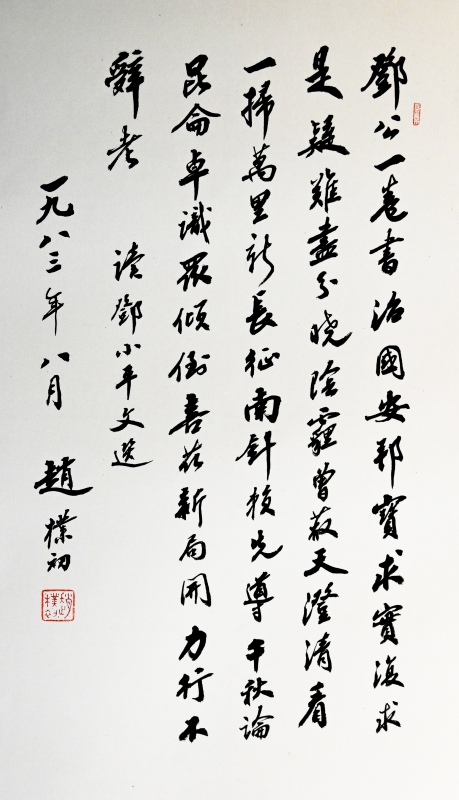 鄧公一卷書治國安邦寶求實復求
是疑難盡分曉陰霾曾蔽天澄清看
一掃萬里新長征南針賴先導千秋論
昆侖卓識眾傾倒喜茲新局開力行不
辭老
读鄧小平文選
一九八三年八月
趙樸初